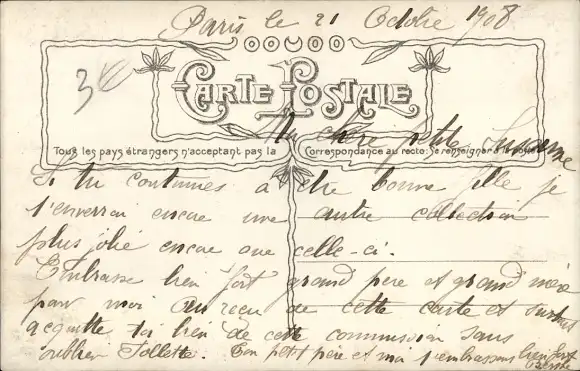 Paris le 21 Octobre 1908
3€
CARTE POSTALE
Ma chère petite Suzanne
Tous les pays étrangers n'acceptant pas la Correspondance au recto: Se renseigner à la Poste
Si tu continues a être bonne fille je
t'enverrai encore une autre collection
plus jolie encore que celle-ci.
Embrasse bien fort grand père et grand mère
pour moi au reçu de cette carte et surtout
acquitte toi bien de cette commission sans
oublier Follette. Ton petit père et moi t'embrassons bien fort